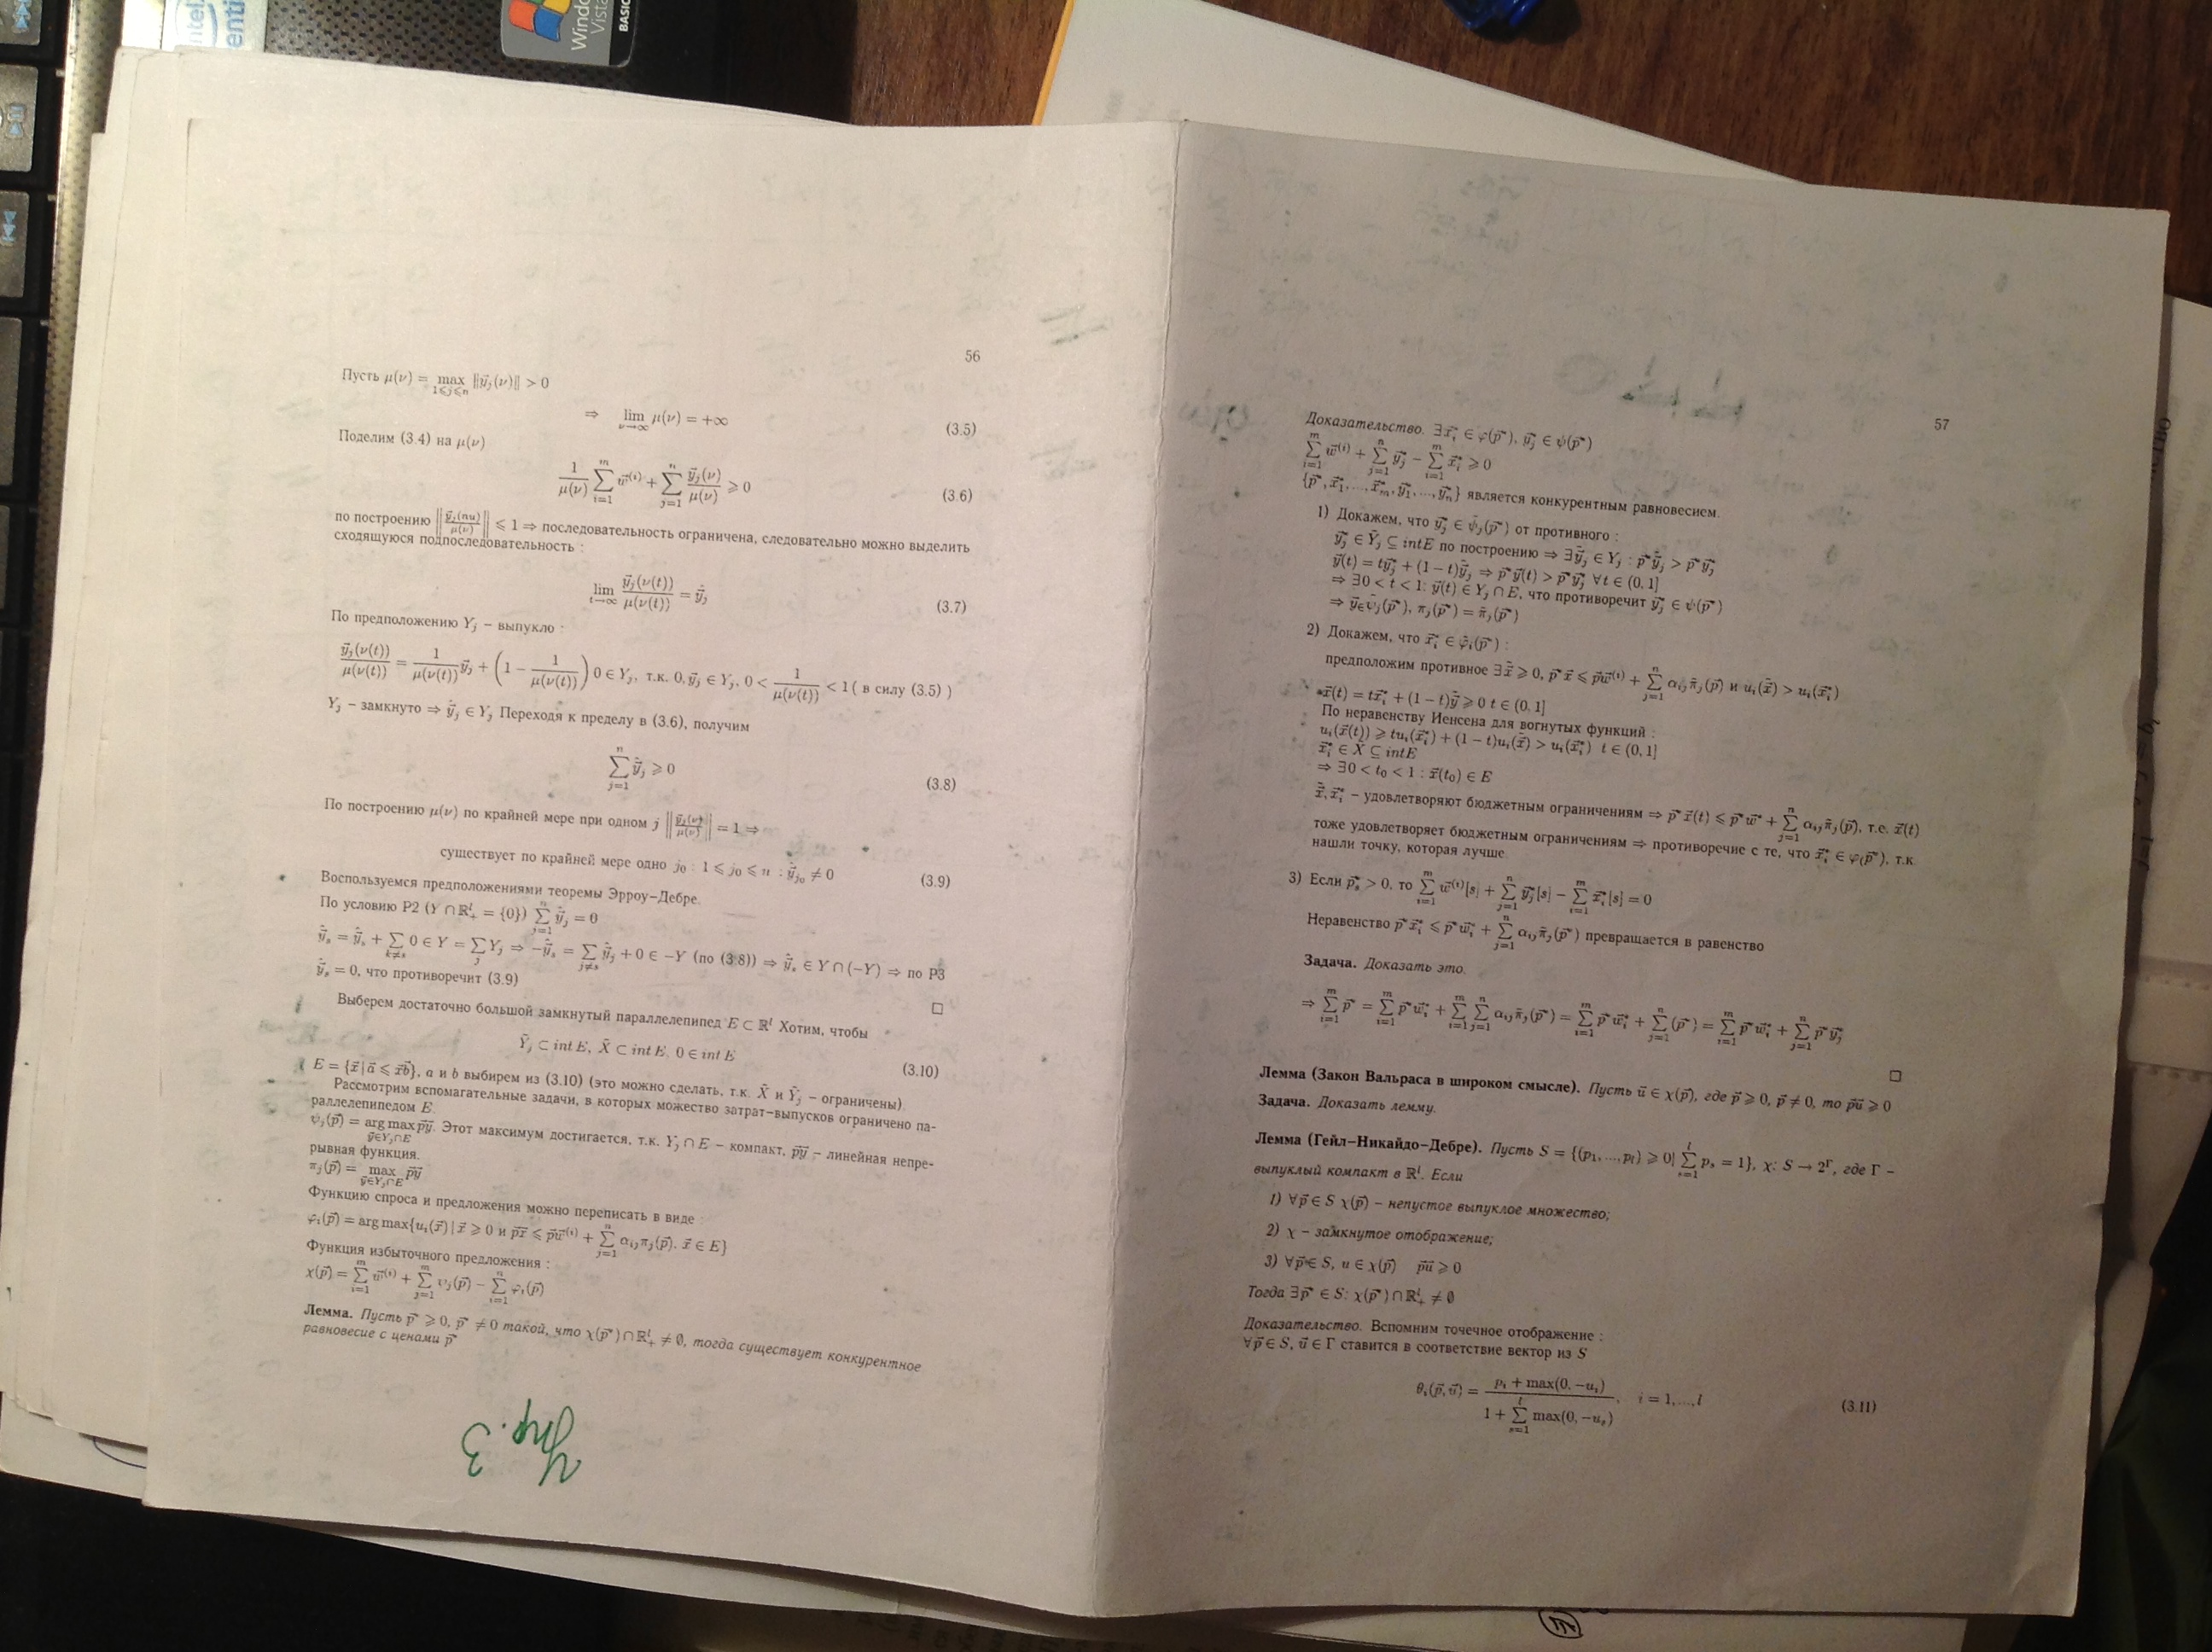 56
Пусть μ(ν) = max_{1⩽j⩽n} ||y⃗_j(ν)|| > 0
⇒ lim_{ν→∞} μ(ν) = +∞ (3.5)
Поделим (3.4) на μ(ν)
1/μ(ν) ∑_{i=1}^{m} w⃗^{(i)} + ∑_{j=1}^{n} y⃗_j(ν)/μ(ν) ⩾ 0 (3.6)
по построению ||y⃗_j(nu)/μ(ν)|| ⩽ 1 ⇒ последовательность ограничена, следовательно можно выделить
сходящуюся подпоследовательность :
lim_{t→∞} y⃗_j(ν(t))/μ(ν(t)) = ŷ⃗_j (3.7)
По предположению Y_j – выпукло :
y⃗_j(ν(t))/μ(ν(t)) = 1/μ(ν(t)) y⃗_j + (1 − 1/μ(ν(t))) 0 ∈ Y_j, т.к. 0, y⃗_j ∈ Y_j, 0 < 1/μ(ν(t)) < 1 ( в силу (3.5) )
Y_j – замкнуто ⇒ ŷ⃗_j ∈ Y_j Переходя к пределу в (3.6), получим
∑_{j=1}^{n} ŷ⃗_j ⩾ 0 (3.8)
По построению μ(ν) по крайней мере при одном j ||y⃗_j(ν)/μ(ν)|| = 1 ⇒
существует по крайней мере одно j_0 : 1 ⩽ j_0 ⩽ n : ŷ⃗_{j_0} ≠ 0 (3.9)
Воспользуемся предположениями теоремы Эрроу–Дебре.
По условию P2 (Y ∩ ℝ^l_+ = {0}) ∑_{j=1}^{n} ŷ⃗_j = 0
ŷ⃗_s = ŷ⃗_s + ∑_{k≠s} 0 ∈ Y = ∑_j Y_j ⇒ −ŷ⃗_s = ∑_{j≠s} ŷ⃗_j + 0 ∈ −Y (по (3.8)) ⇒ ŷ⃗_s ∈ Y ∩ (−Y) ⇒ по P3
ŷ⃗_s = 0, что противоречит (3.9)
□
Выберем достаточно большой замкнутый параллелепипед E ⊂ ℝ^l Хотим, чтобы
Ỹ_j ⊂ int E, X̃ ⊂ int E, 0 ∈ int E (3.10)
E = {x⃗ | a⃗ ⩽ x⃗b⃗}, a и b выбирем из (3.10) (это можно сделать, т.к. X̃ и Ỹ_j – ограничены).
Рассмотрим вспомагательные задачи, в которых можество затрат–выпусков ограничено па-
раллелепипедом E.
ψ_j(p⃗) = arg max_{y⃗∈Y_j∩E} p⃗y⃗. Этот максимум достигается, т.к. Y_j ∩ E – компакт, p⃗y⃗ – линейная непре-
рывная функция.
π_j(p⃗) = max_{y⃗∈Y_j∩E} p⃗y⃗
Функцию спроса и предложения можно переписать в виде :
φ_i(p⃗) = arg max{u_i(x⃗) | x⃗ ⩾ 0 и p⃗x⃗ ⩽ p⃗w⃗^{(i)} + ∑_{j=1}^{n} α_{ij}π_j(p⃗), x⃗ ∈ E}
Функция избыточного предложения :
χ(p⃗) = ∑_{i=1}^{m} w⃗^{(i)} + ∑_{j=1}^{m} ψ_j(p⃗) − ∑_{i=1}^{n} φ_i(p⃗)
Лемма. Пусть p⃗* ⩾ 0, p⃗* ≠ 0 такой, что χ(p⃗*) ∩ ℝ^l_+ ≠ ∅, тогда существует конкурентное
равновесие с ценами p⃗*
Упр. 3
57
Доказательство. ∃x⃗*_i ∈ φ(p⃗*), y⃗*_j ∈ ψ(p⃗*)
∑_{i=1}^{m} w⃗^{(i)} + ∑_{j=1}^{n} y⃗*_j − ∑_{i=1}^{m} x⃗*_i ⩾ 0
{p⃗*, x⃗*_1, ..., x⃗*_m, y⃗*_1, ..., y⃗*_n} является конкурентным равновесием.
1) Докажем, что y⃗*_j ∈ ψ̃_j(p⃗*) от противного :
y⃗*_j ∈ Ỹ_j ⊆ intE по построению ⇒ ∃ỹ⃗_j ∈ Y_j : p⃗*ỹ⃗_j > p⃗*y⃗*_j
y⃗(t) = ty⃗*_j + (1 − t)ỹ⃗_j ⇒ p⃗*y⃗(t) > p⃗*y⃗*_j ∀t ∈ (0, 1]
⇒ ∃0 < t < 1: y⃗(t) ∈ Y_j ∩ E, что противоречит y⃗*_j ∈ ψ(p⃗*)
⇒ y⃗∈ψ̃_j(p⃗*), π_j(p⃗*) = π̃_j(p⃗*)
2) Докажем, что x⃗*_i ∈ φ̃_i(p⃗*) :
предположим противное ∃x̃⃗ ⩾ 0, p⃗*x⃗ ⩽ p⃗w⃗^{(i)} + ∑_{j=1}^{n} α_{ij}π̃_j(p⃗) и u_i(x̃⃗) > u_i(x⃗*_i)
x⃗(t) = tx⃗*_i + (1 − t)ỹ⃗ ⩾ 0 t ∈ (0, 1]
По неравенству Иенсена для вогнутых функций :
u_i(x⃗(t)) ⩾ tu_i(x⃗*_i) + (1 − t)u_i(x̃⃗) > u_i(x⃗*_i) t ∈ (0, 1]
x⃗*_i ∈ X̃ ⊆ intE
⇒ ∃0 < t_0 < 1 : x⃗(t_0) ∈ E
x̃⃗, x⃗*_i – удовлетворяют бюджетным ограничениям ⇒ p⃗*x⃗(t) ⩽ p⃗*w⃗* + ∑_{j=1}^{n} α_{ij}π̃_j(p⃗), т.е. x⃗(t)
тоже удовлетворяет бюджетным ограничениям ⇒ противоречие с те, что x⃗*_i ∈ φ(p⃗*), т.к.
нашли точку, которая лучше.
3) Если p⃗*_s > 0, то ∑_{i=1}^{m} w⃗^{(i)}[s] + ∑_{j=1}^{n} y⃗*_j[s] − ∑_{i=1}^{m} x⃗*_i[s] = 0
Неравенство p⃗*x⃗*_i ⩽ p⃗*w⃗*_i + ∑_{j=1}^{n} α_{ij}π̃_j(p⃗*) превращается в равенство
Задача. Доказать это.
⇒ ∑_{i=1}^{m} p⃗* = ∑_{i=1}^{m} p⃗*w⃗*_i + ∑_{i=1}^{m} ∑_{j=1}^{n} α_{ij}π̃_j(p⃗*) = ∑_{i=1}^{m} p⃗*w⃗*_i + ∑_{j=1}^{n} (p⃗*) = ∑_{i=1}^{m} p⃗*w⃗*_i + ∑_{j=1}^{n} p⃗*y⃗*_j
□
Лемма (Закон Вальраса в широком смысле). Пусть u⃗ ∈ χ(p⃗), где p⃗ ⩾ 0, p⃗ ≠ 0, то p⃗u⃗ ⩾ 0
Задача. Доказать лемму.
Лемма (Гейл–Никайдо–Дебре). Пусть S = {(p_1, ..., p_l) ⩾ 0| ∑_{s=1}^{l} p_s = 1}, χ: S → 2^Γ, где Γ –
выпуклый компакт в ℝ^l. Если
1) ∀p⃗ ∈ S χ(p⃗) – непустое выпуклое множество;
2) χ – замкнутое отображение;
3) ∀p⃗ ∈ S, u ∈ χ(p⃗) p⃗u⃗ ⩾ 0
Тогда ∃p⃗* ∈ S: χ(p⃗*) ∩ ℝ^l_+ ≠ ∅
Доказательство. Вспомним точечное отображение :
∀p⃗ ∈ S, u⃗ ∈ Γ ставится в соответствие вектор из S
θ_i(p⃗, u⃗) = (p_i + max(0, −u_i)) / (1 + ∑_{s=1}^{l} max(0, −u_s)), i = 1, ..., l (3.11)
Windo
Vista
BASIC
intel
enti